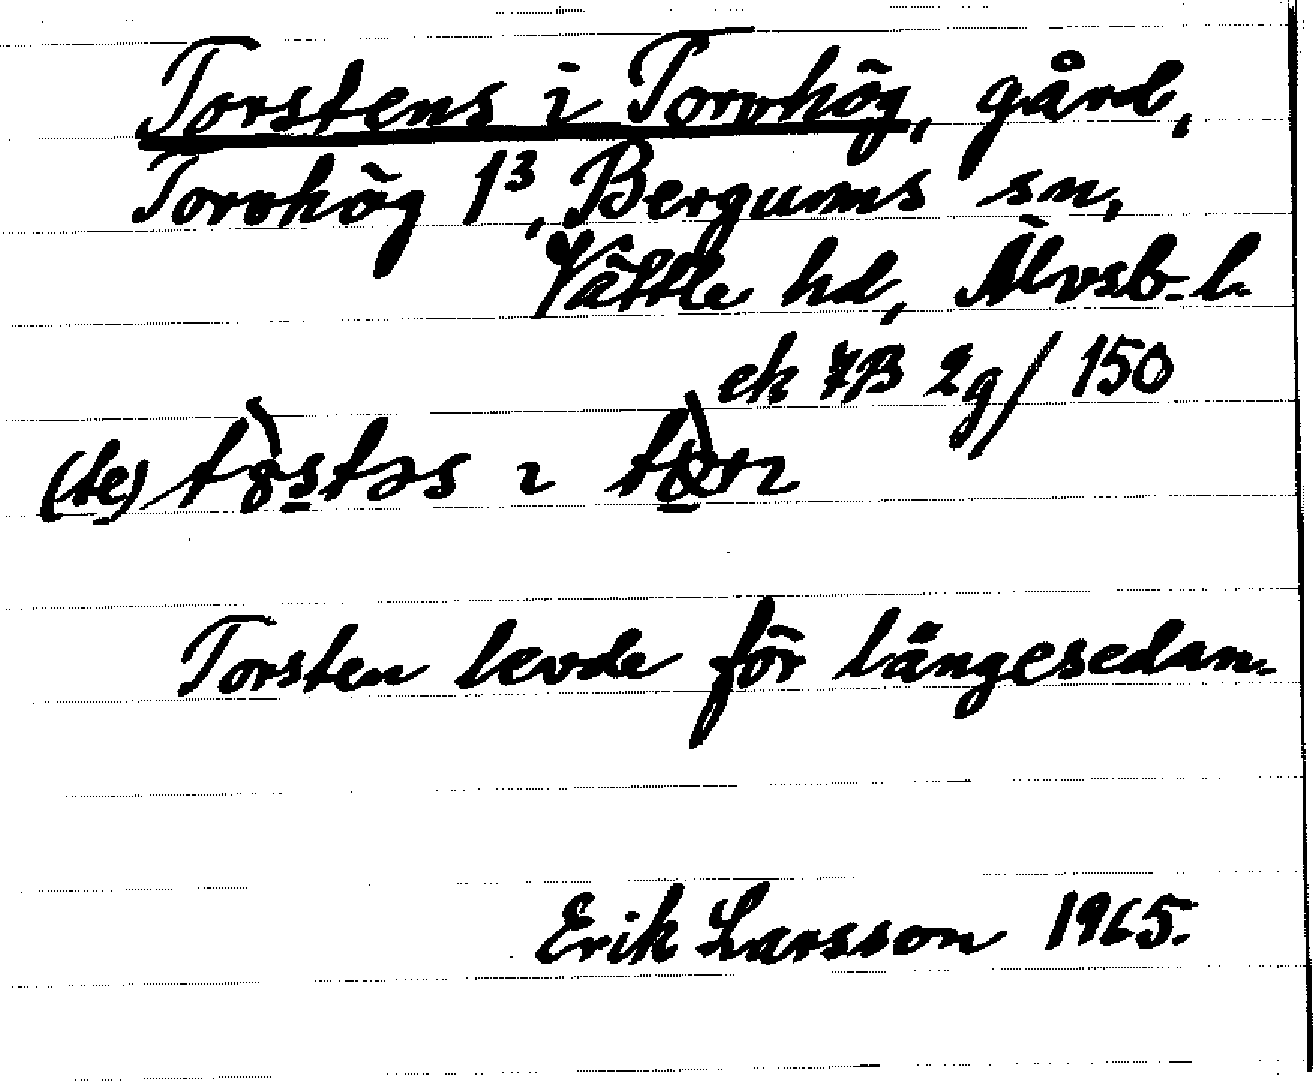 Torstens i Torvhög, gård,
Torvhög 1³, Bergums sn,
Vättle hd, Älvsb. l.
ek 7B 2g/150
(te) tòstəs ı
Torsten levde för längesedan.
Erik Larsson 1965.